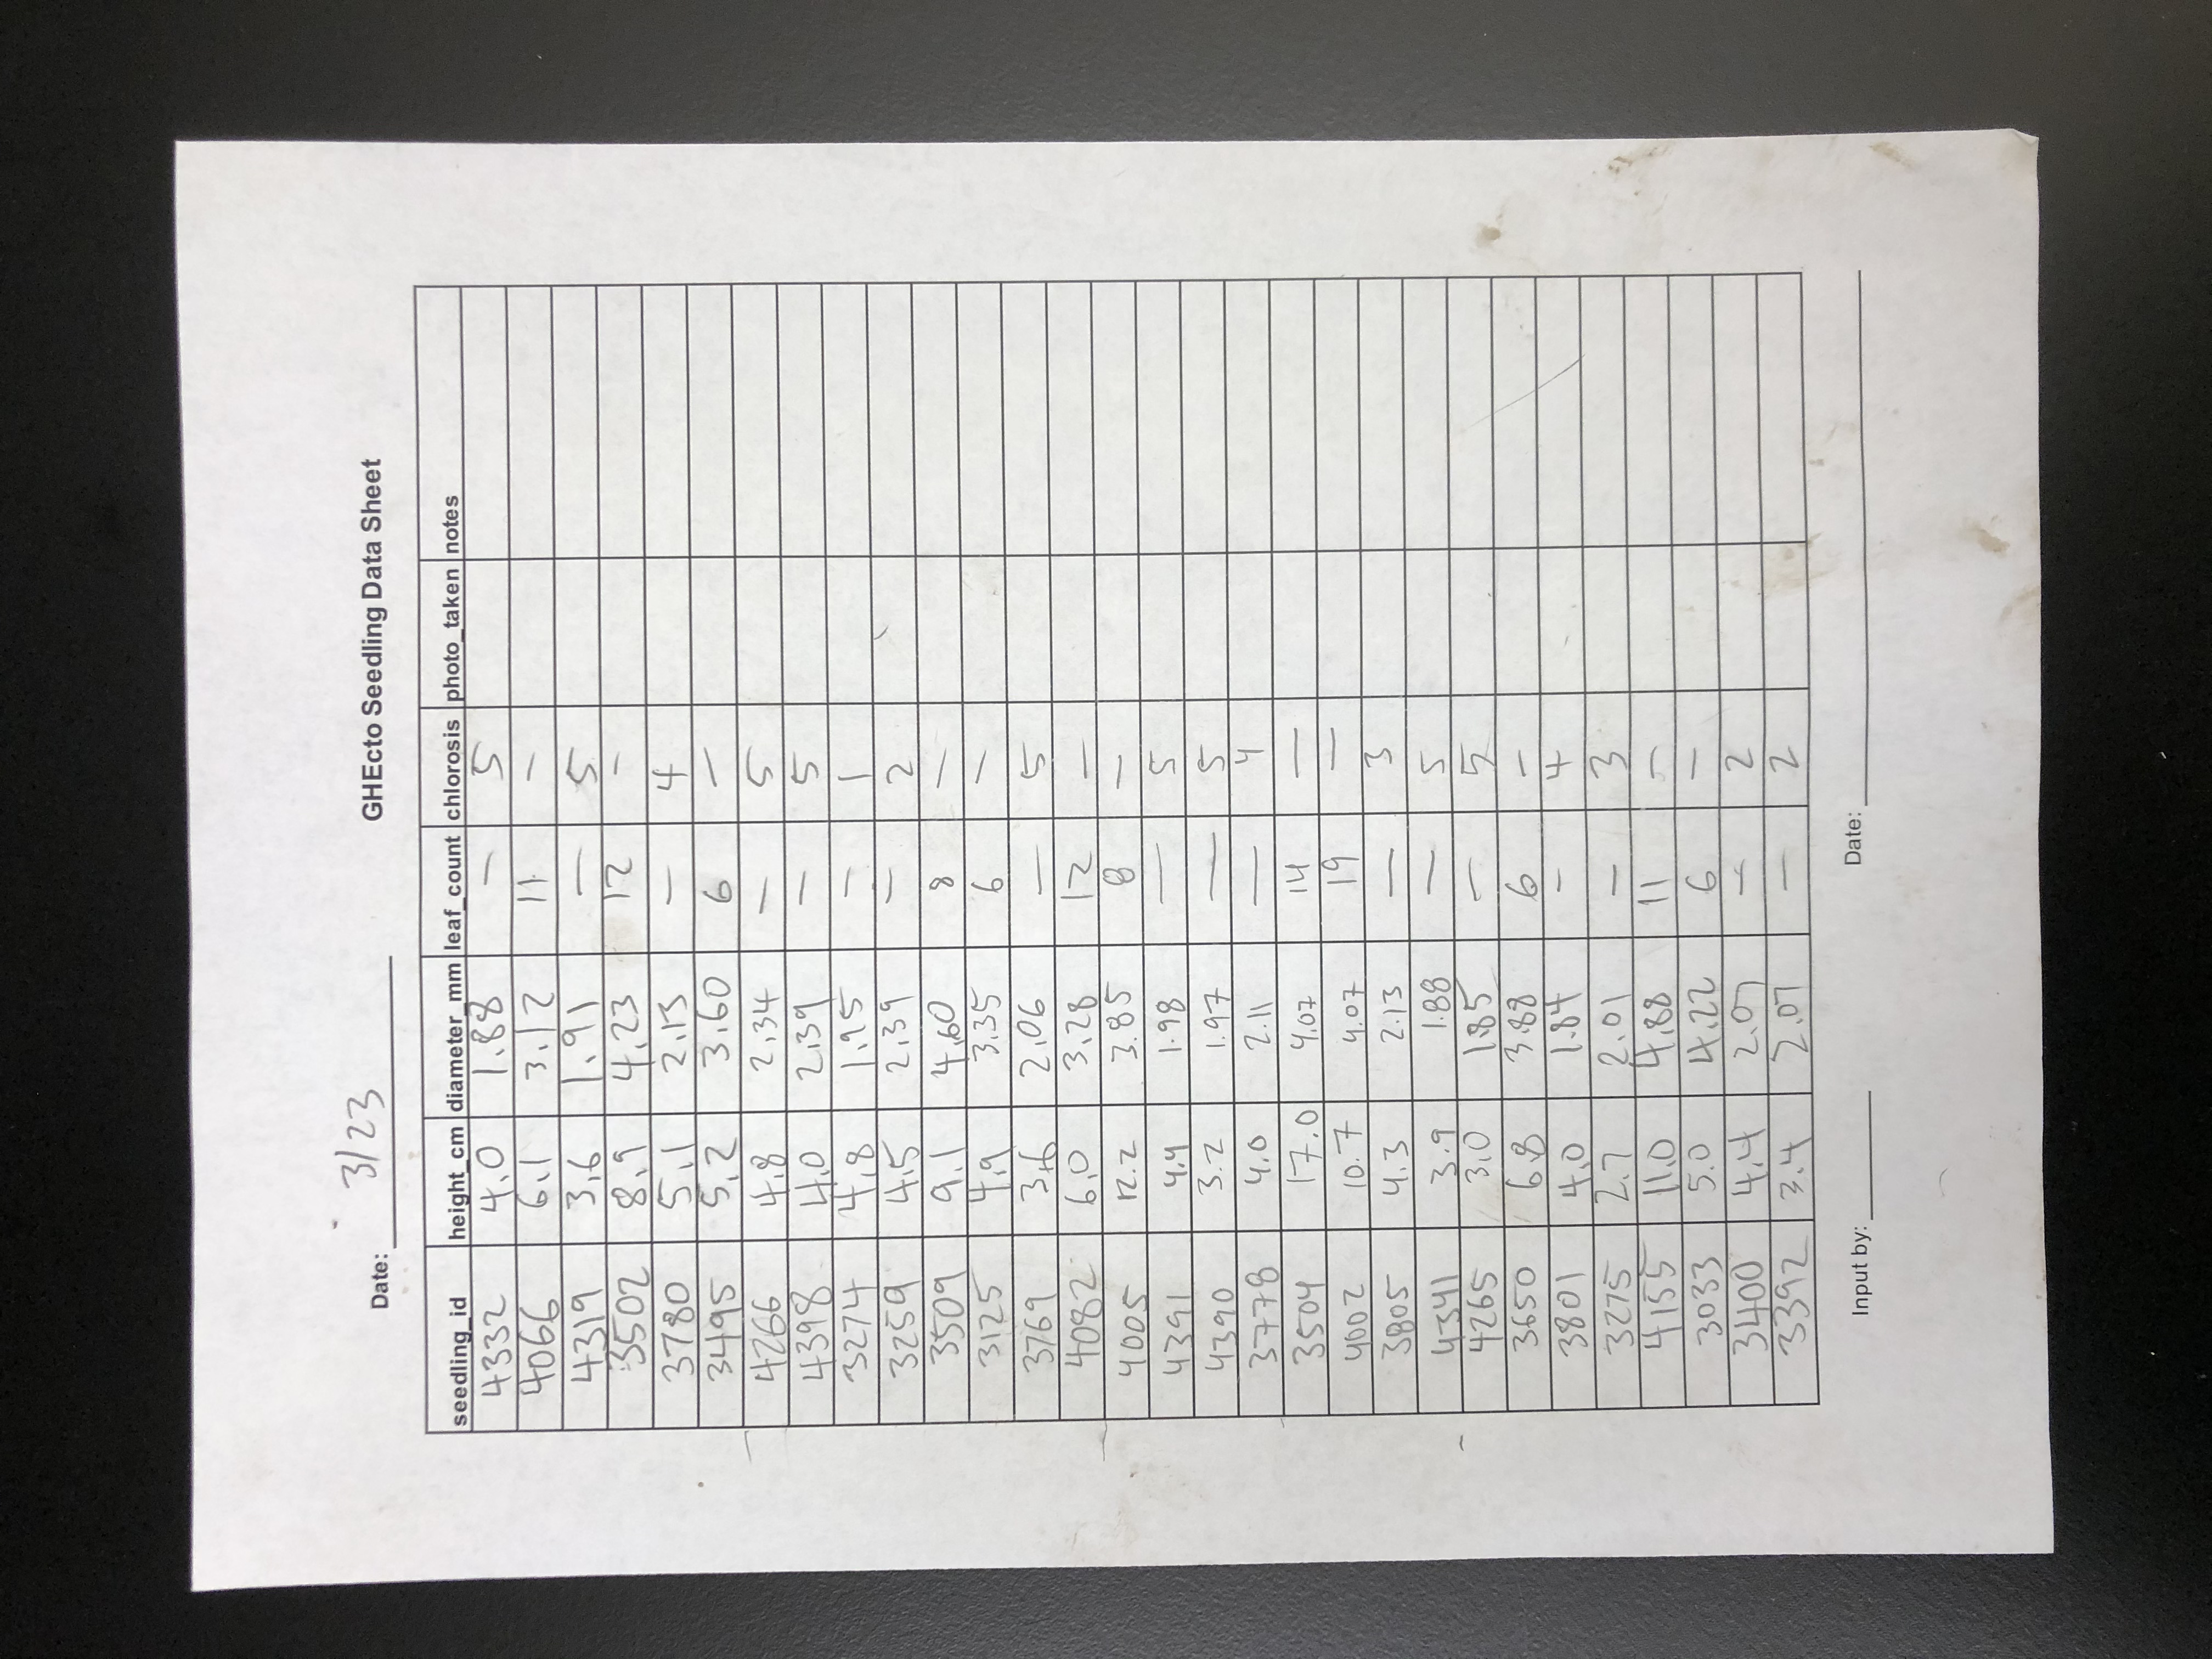 GHEcto Seedling Data Sheet
Date: 3/23
seedling_id height_cm diameter_mm leaf_count chlorosis photo_taken notes
4332 4.0 1.88 — 5
4066 6.1 3.12 11 —
4319 3.6 1.91 — 5
3502 8.9 4.23 12 —
3780 5.1 2.13 — 4
3495 5.2 3.60 6 —
4266 4.8 2.34 — 5
4398 4.0 2.39 — 5
3274 4.8 1.95 — 1
3259 4.5 2.39 — 2
3509 9.1 4.60 8 —
3125 4.9 3.35 6 —
3769 3.6 2.06 — 5
4082 6.0 3.28 12 —
4005 12.2 3.85 8 —
4391 4.4 1.98 — 5
4390 3.2 1.97 — 5
3778 4.0 2.11 — 4
3504 17.0 4.07 14 —
4002 10.7 4.07 19 —
3805 4.3 2.13 — 3
4341 3.9 1.88 — 5
4265 3.0 1.85 — 5
3650 6.8 3.88 6 —
3801 4.0 1.84 — 4
3275 2.7 2.01 — 3
4155 11.0 4.88 11 —
3033 5.0 4.22 6 —
3400 4.4 2.07 — 2
3392 3.4 2.07 — 2
Input by: Date: